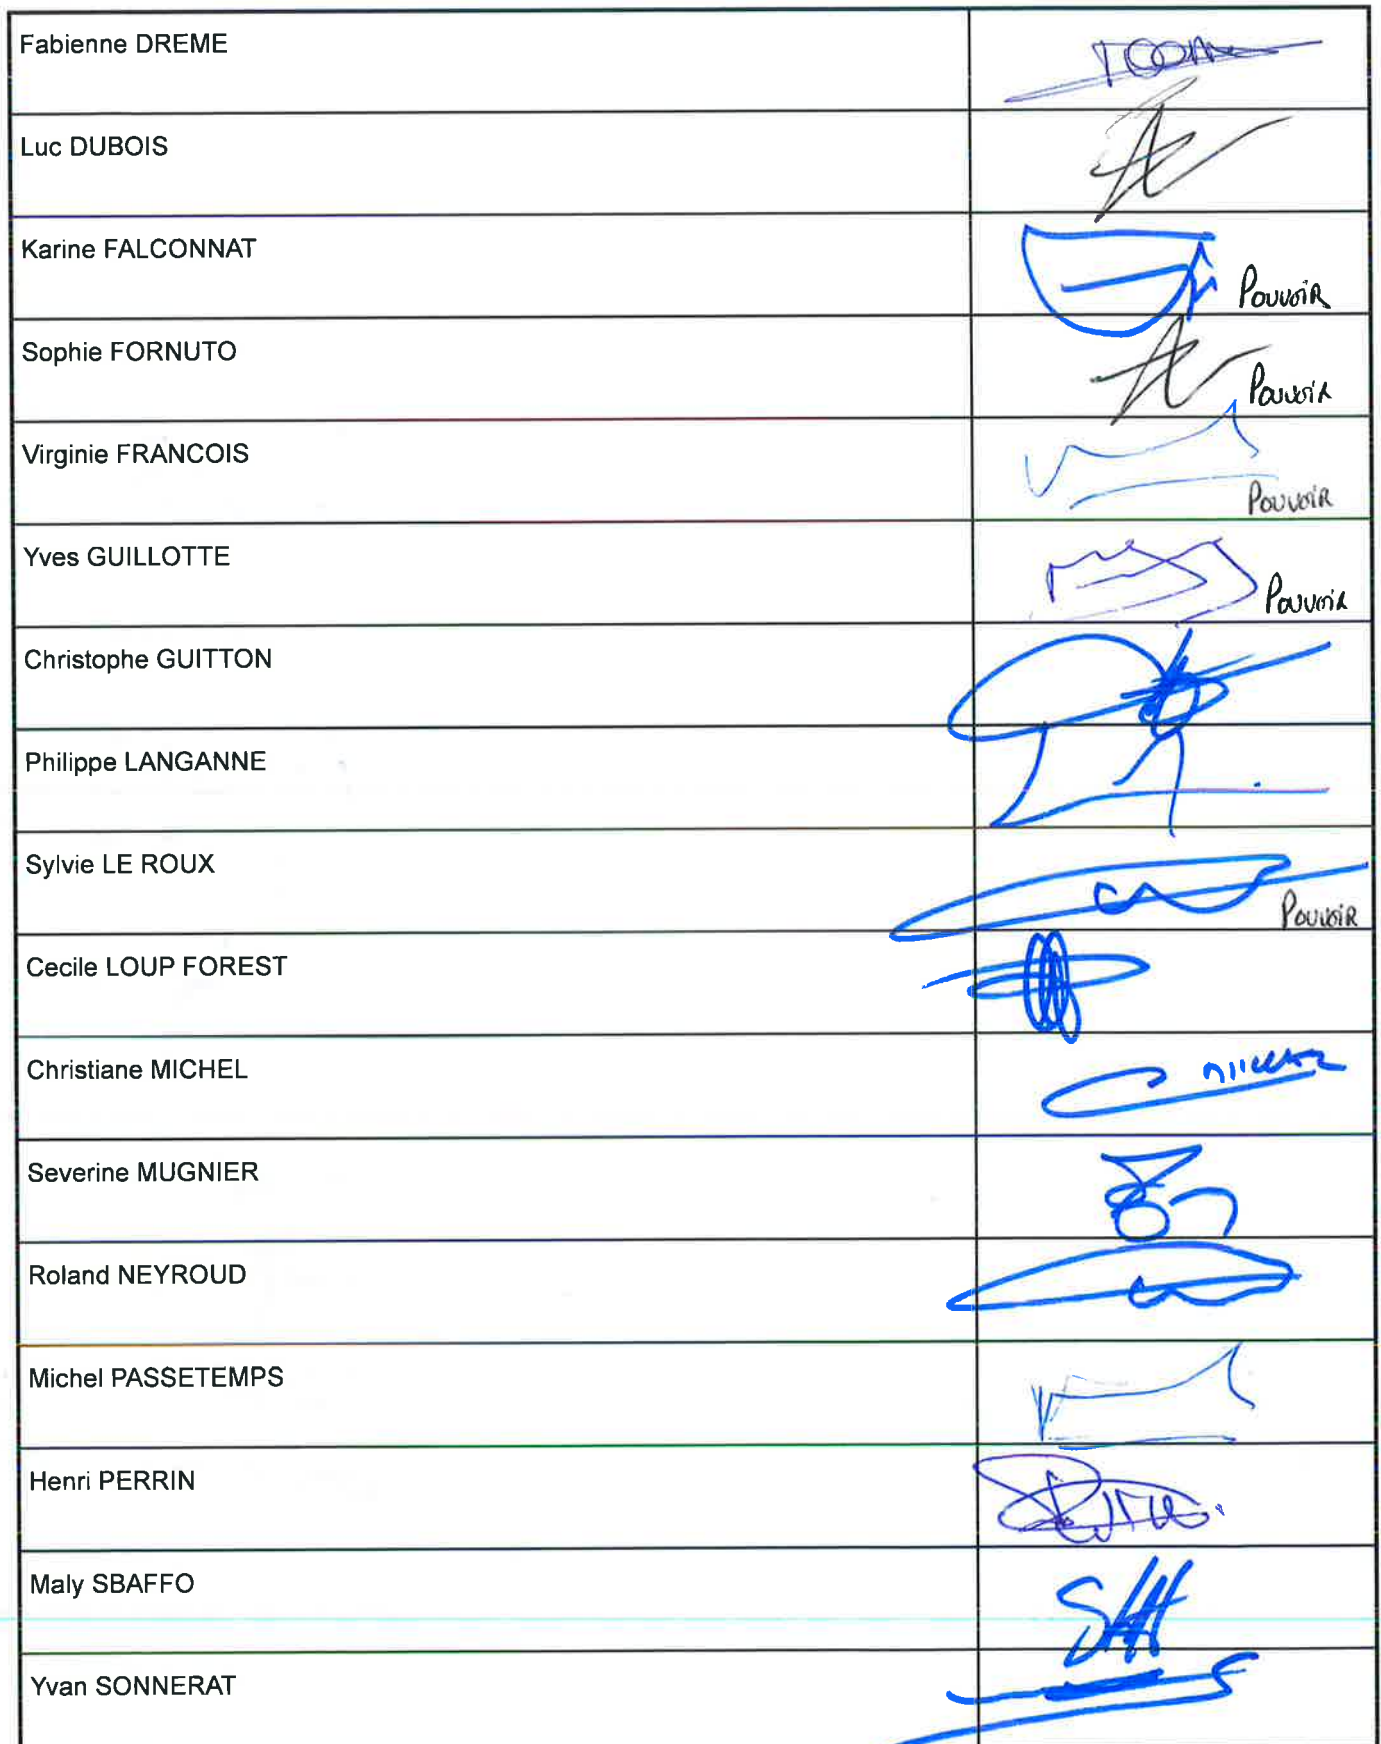 Fabienne DREME
Luc DUBOIS
Karine FALCONNAT
Pouvoir
Sophie FORNUTO
Pouvoir
Virginie FRANCOIS
Pouvoir
Yves GUILLOTTE
Pouvoir
Christophe GUITTON
Philippe LANGANNE
Sylvie LE ROUX
Pouvoir
Cecile LOUP FOREST
Christiane MICHEL
Severine MUGNIER
Roland NEYROUD
Michel PASSETEMPS
Henri PERRIN
Maly SBAFFO
Yvan SONNERAT